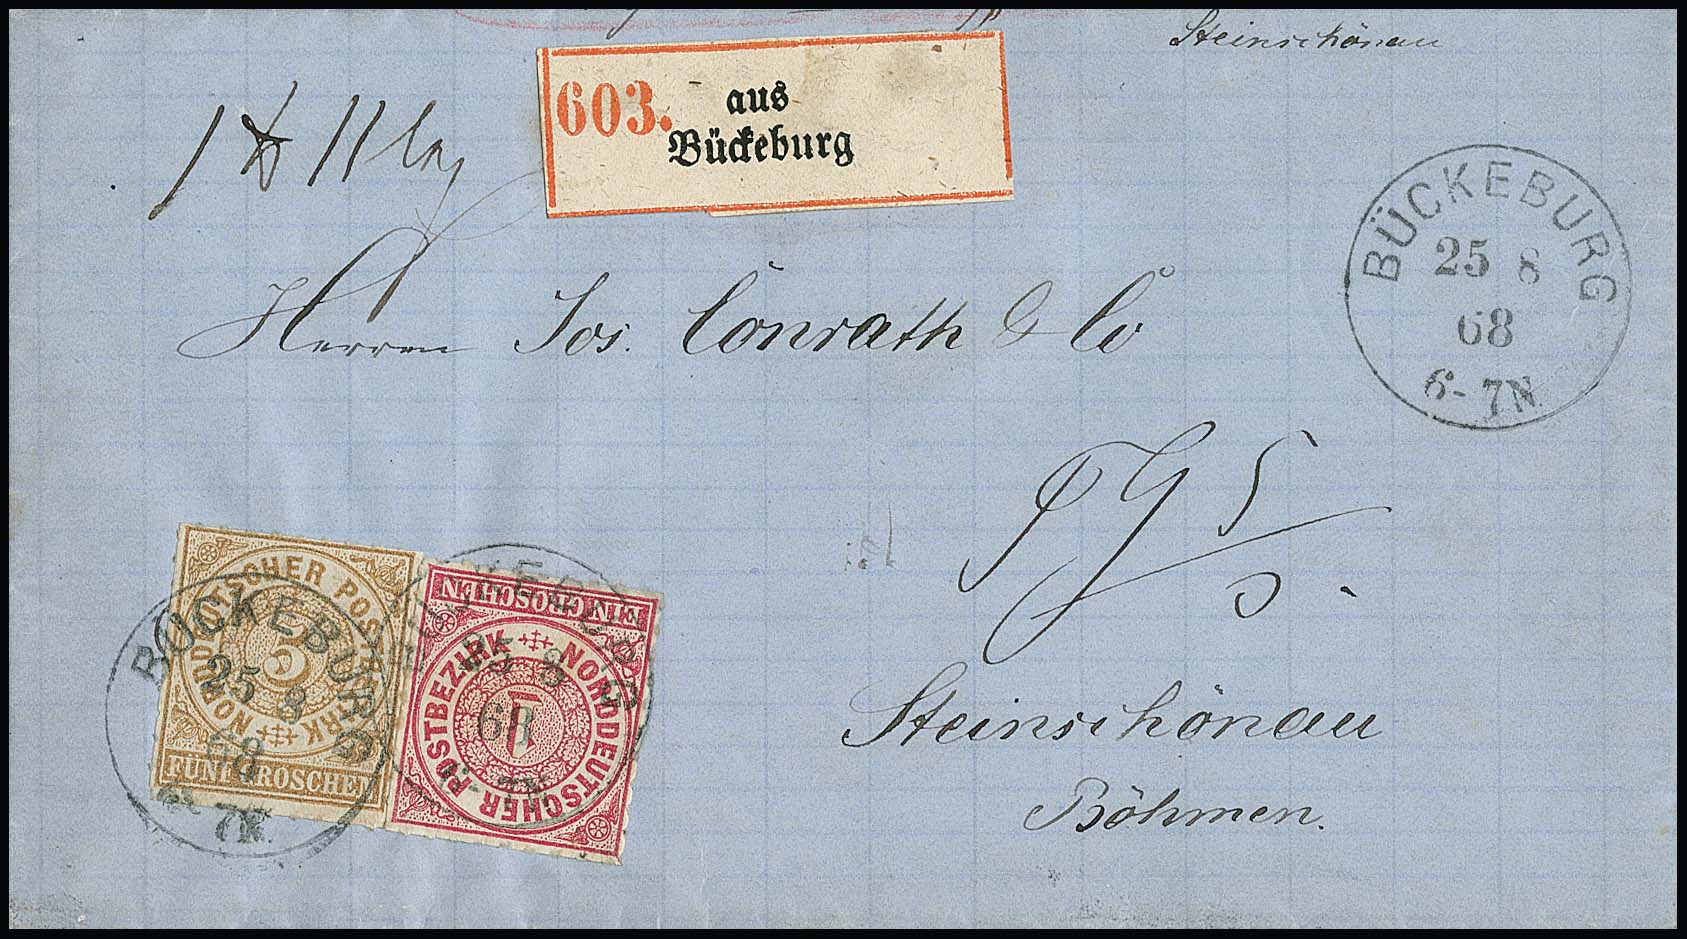 Steinschönau
603. aus
Bückeburg
Herren Jos. Conrath & Co
BÜCKEBURG
25 8
68
6-7N
Steinschönau
Böhmen.
NORDDEUTSCHER POSTBEZIRK
5
FÜNF GROSCHEN
BÜCKEBURG
25 8
68
7N
EIN GROSCHEN
NORDDEUTSCHER POSTBEZIRK
1
BÜCKEBURG
25 8
68